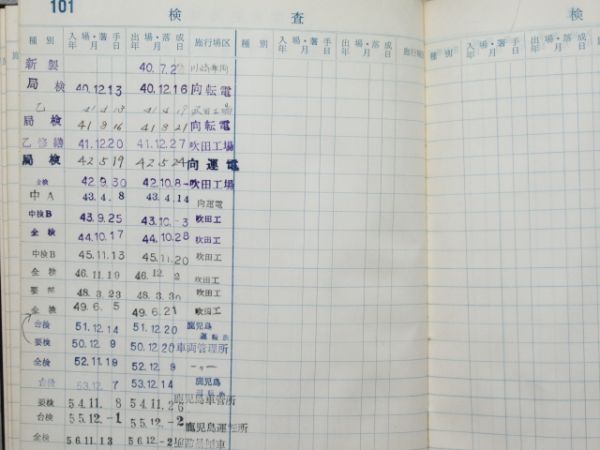 101
検 査 検
種 別 入場・着手 年月日 出場・落成 年月日 施行場区 種 別 入場・着手 年月日 出場・落成 年月日 施行場区 種 別 入場・着手 年月日 出場・落成 年月日
新製 40.7.2 川崎車両
局検 40.12.13 40.12.16 向転電
乙 41 4 13 41 4 19 吹田工場
局検 41 8 16 41 8 21 向転電
乙修繕 41.12.20 41.12.27 吹田工場
局検 42 5 19 42 5 24 向運電
全検 42.9.30 42.10.8 吹田工場
中A 43.4.8 43.4.14 向運電
中検B 43.9.25 43.10.-3 吹田工
全検 44.10.17 44.10.28 吹田工
中検B 45.11.13 45.11.20 吹田工
全検 46.11.19 46.12.2 吹田工
要検 48.3.23 48.3.30 吹田工
全検 49.6.5 49.6.21 吹田工
台検 51.12.14 51.12.20 鹿児島運転所
要検 50.12.9 50.12.20 車両管理所
全検 52.11.19 52.12.9 〃
台検 53.12.7 53.12.14 鹿児島
要検 54.11.8 54.11.26 鹿児島車管所
台検 55.12.-1 55.12.-2 鹿児島運転所
全検 56.11.13 56.12.-2